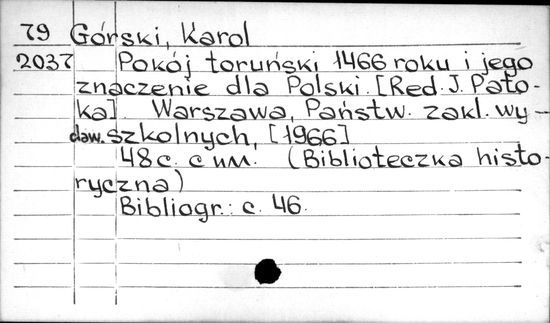 79 Górski, Karol
2037 Pokój toruński 1466 roku i jego
znaczenie dla Polski. [Red. J. Pato-
ka]. Warszawa, Państw. zakl. wy-
daw. szkolnych, [1966]
48 с. с илл. (Biblioteczka histo-
ryczna)
Bibliogr.: с. 46.